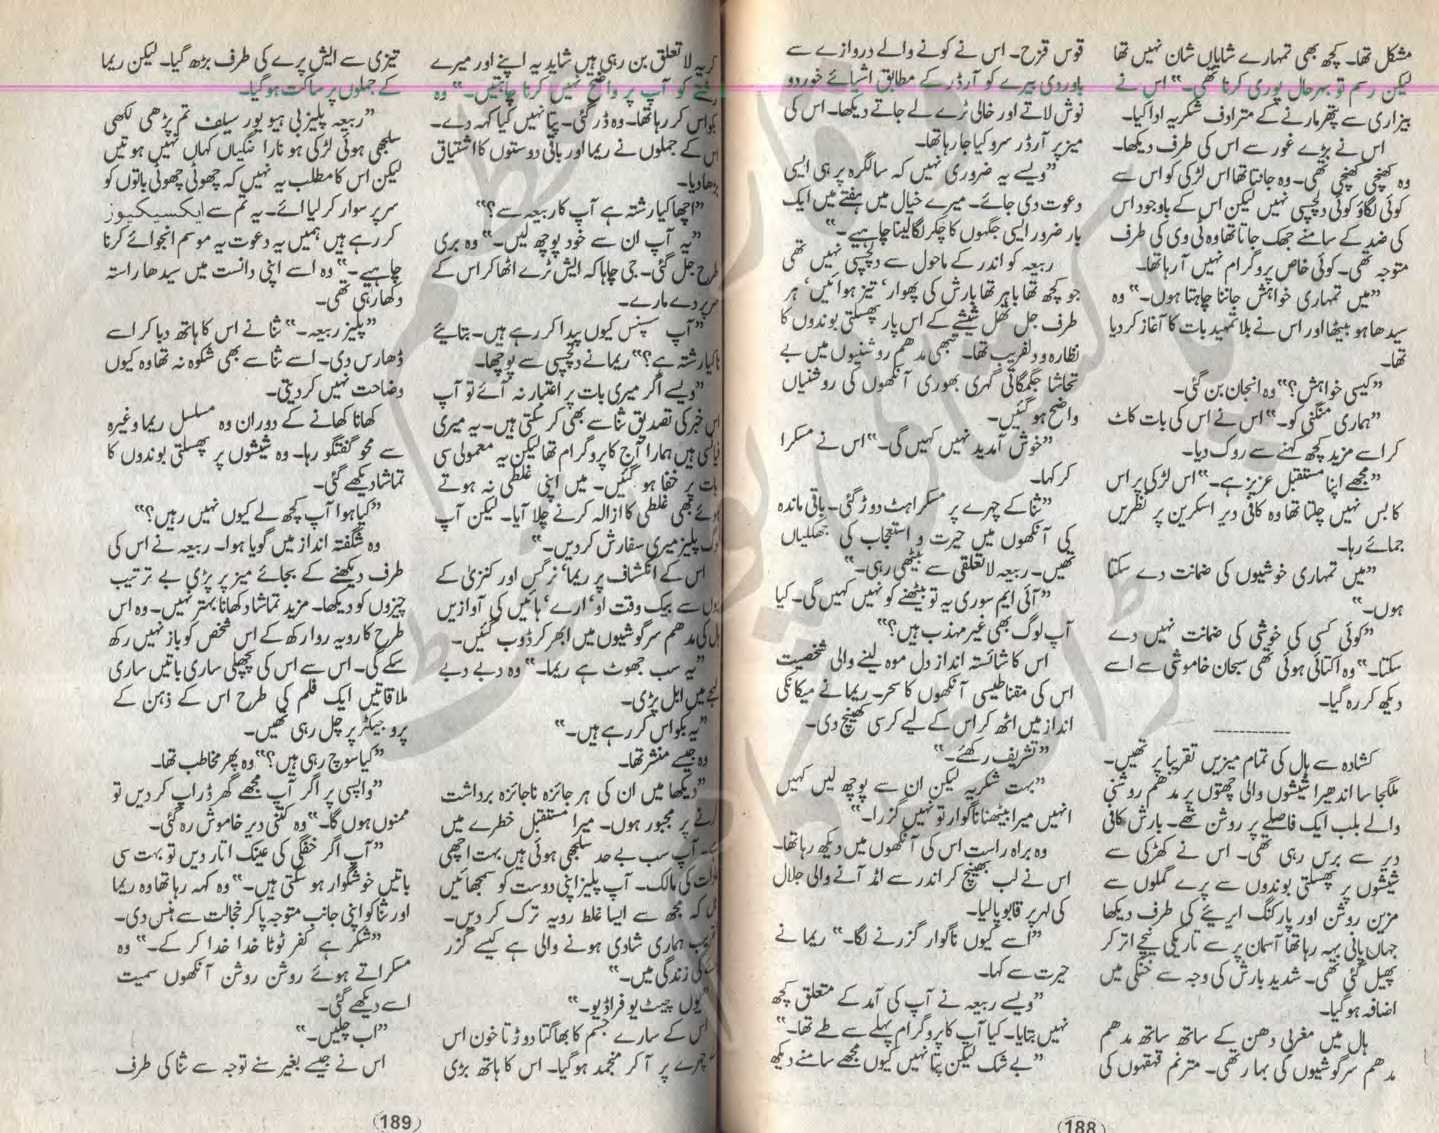 مشکل تھا۔ کچھ بھی تمہارے شایاں شان نہیں تھا
لیکن رسم تو بہرحال پوری کرنا تھی۔“ اس نے
بیزاری سے پتھر مارنے کے مترادف شکریہ ادا کیا۔
اس نے بڑے غور سے اس کی طرف دیکھا۔
وہ کھنچی کھنچی تھی۔ وہ جانتا تھا اس لڑکی کو اس سے
کوئی لگاؤ کوئی دلچسپی نہیں لیکن اس کے باوجود اس
کی ضد کے سامنے جھک جاتا تھا وہ ٹی وی کی طرف
متوجہ تھی۔ کوئی خاص پروگرام نہیں آ رہا تھا۔
”میں تمہاری خواہش جاننا چاہتا ہوں۔“ وہ
سیدھا ہو بیٹھا اور اس نے بلا تمہید بات کا آغاز کر دیا
تھا۔
”کیسی خواہش؟“ وہ انجان بن گئی۔
”ہماری منگنی کو۔“ اس نے اس کی بات کاٹ
کر اسے مزید کچھ کہنے سے روک دیا۔
”مجھے اپنا مستقبل عزیز ہے۔“ اس لڑکی پر اس
کا بس نہیں چلتا تھا وہ کافی دیر اسکرین پر نظریں
جمائے رہا۔
”میں تمہاری خوشیوں کی ضمانت دے سکتا
ہوں۔“
”کوئی کسی کی خوشی کی ضمانت نہیں دے
سکتا۔“ وہ اکتائی ہوئی تھی سبحان خاموشی سے اسے
دیکھ کر رہ گیا۔
------------
کشادہ سے ہال کی تمام میزیں تقریباً پر تھیں۔
ملگجا سا اندھیرا شیشوں والی چھتوں پر مدھم روشنی
والے بلب ایک فاصلے پر روشن تھے۔ بارش کافی
دیر سے برس رہی تھی۔ اس نے کھڑکی سے
شیشوں پر پھسلتی بوندوں سے پرے گملوں سے
مزین روشن اور پارکنگ ایریئے کی طرف دیکھا
جہاں پانی بہہ رہا تھا آسمان پر سے تاریکی نیچے اتر کر
پھیل گئی تھی۔ شدید بارش کی وجہ سے خنکی میں
اضافہ ہو گیا۔
ہال میں مغربی دھن کے ساتھ ساتھ مدھم
مدھم سرگوشیوں کی بہار تھی۔ مترنم قہقہوں کی
قوس قزح۔ اس نے کونے والے دروازے سے
باوردی بیرے کو آرڈر کے مطابق اشیائے خوردو
نوش لاتے اور خالی ٹرے لے جاتے دیکھا۔ اس کی
میز پر آرڈر سرو کیا جا رہا تھا۔
”ویسے یہ ضروری نہیں کہ سالگرہ پر ہی ایسی
دعوت دی جائے۔ میرے خیال میں ہفتے میں ایک
بار ضرور ایسی جگہوں کا چکر لگا لینا چاہیے۔“
ربیعہ کو اندر کے ماحول سے دلچسپی نہیں تھی
جو کچھ تھا باہر تھا بارش کی پھوار‘ تیز ہوائیں‘ ہر
طرف جل تھل شیشے کے اس پار پھسلتی بوندوں کا
نظارہ دلفریب تھا۔ تبھی مدھم روشنیوں میں بے
تحاشا جگمگاتی گہری بھوری آنکھوں کی روشنیاں
واضح ہو گئیں۔
”خوش آمدید نہیں کہیں گی۔“ اس نے مسکرا
کر کہا۔
”ثنا کے چہرے پر مسکراہٹ دوڑ گئی۔ باقی ماندہ
کی آنکھوں میں حیرت و استعجاب کی جھلکیاں
تھیں۔ ربیعہ لا تعلقی سے بیٹھی رہی۔“
”آئی ایم سوری یہ تو بیٹھنے کو نہیں کہیں گی۔ کیا
آپ لوگ بھی غیر مہذب ہیں؟“
اس کا شائستہ انداز دل موہ لینے والی شخصیت
اس کی مقناطیسی آنکھوں کا سحر۔ ریما نے میکانکی
انداز میں اٹھ کر اس کے لیے کرسی کھینچ دی۔
”تشریف رکھئے۔“
”بہت شکریہ لیکن ان سے پوچھ لیں کہیں
انہیں میرا بیٹھنا ناگوار تو نہیں گزرا۔“
وہ براہ راست اس کی آنکھوں میں دیکھ رہا تھا۔
اس نے لب بھینچ کر اندر سے امڈ آنے والی جلال
کی لہر پر قابو پا لیا۔
”اسے کیوں ناگوار گزرنے لگا۔“ ریما نے
حیرت سے کہا۔
”ویسے ربیعہ نے آپ کی آمد کے متعلق کچھ
نہیں بتایا۔ کیا آپ کا پروگرام پہلے سے طے تھا۔“
”بے شک لیکن پتا نہیں کیوں مجھے سامنے دیکھ
188
کر یہ لا تعلق بن رہی ہیں شاید یہ اپنے اور میرے
رشتے کو آپ پر واضح نہیں کرنا چاہتیں۔“ وہ
بکواس کر رہا تھا۔ وہ ڈر گئی۔ پتا نہیں کیا کہہ دے۔
اس کے جملوں نے ریما اور باقی دوستوں کا اشتیاق
بڑھا دیا۔
”اچھا کیا رشتہ ہے آپ کا ربیعہ سے؟“
”یہ آپ ان سے خود پوچھ لیں۔“ وہ بری
طرح جل گئی۔ جی چاہا کہ ایش ٹرے اٹھا کر اس کے
سر پر دے مارے۔
”آپ سسپنس کیوں پیدا کر رہے ہیں۔ بتائیے
نا کیا رشتہ ہے؟“ ریما نے دلچسپی سے پوچھا۔
”ویسے اگر میری بات پر اعتبار نہ آئے تو آپ
اس خبر کی تصدیق ثنا سے بھی کر سکتی ہیں۔ یہ میری
فیانسی ہیں ہمارا آج کا پروگرام تھا لیکن یہ معمولی سی
بات پر خفا ہو گئیں۔ میں اپنی غلطی نہ ہوتے
ہوئے بھی غلطی کا ازالہ کرنے چلا آیا۔ لیکن آپ
لوگ پلیز میری سفارش کر دیں۔“
اس کے انکشاف پر ریما‘ نرگس اور کنزیٰ کے
لبوں سے بیک وقت او‘ ارے‘ ہائیں کی آوازیں
ہال کی مدھم سرگوشیوں میں ابھر کر ڈوب گئیں۔
”یہ سب جھوٹ ہے ریما۔“ وہ دبے دبے
لہجے میں ابل پڑی۔
”یہ بکواس کر رہے ہیں۔“
وہ جیسے منتشر تھا۔
”دیکھا میں ان کی ہر جائزہ ناجائزہ برداشت
کرنے پر مجبور ہوں۔ میرا مستقبل خطرے میں
ہے۔ آپ سب بے حد سلجھی ہوئی ہیں بہت اچھی
کی مالک۔ آپ پلیز اپنی دوست کو سمجھائیں
کہ مجھ سے ایسا غلط رویہ ترک کر دیں۔
ہماری شادی ہونے والی ہے کیسے گزر
کی زندگی میں۔“
”یوں چیٹ یو فراڈیو۔“
اس کے سارے جسم کا بھاگتا دوڑتا خون اس
چہرے پر آ کر منجمد ہو گیا۔ اس کا ہاتھ بڑی
تیزی سے ایش ٹرے کی طرف بڑھ گیا۔ لیکن ریما
کے جملوں پر ساکت ہو گیا۔
”ربیعہ پلیز بی ہیو یور سیلف تم پڑھی لکھی
سلجھی ہوئی لڑکی ہو ناراضگیاں کہاں نہیں ہوتیں
لیکن اس کا مطلب یہ نہیں کہ چھوٹی چھوٹی باتوں کو
سر پر سوار کر لیا ائے۔ یہ تم سے ایکسیکیوز
کر رہے ہیں ہمیں یہ دعوت یہ موسم انجوائے کرنا
چاہیے۔“ وہ اسے اپنی دانست میں سیدھا راستہ
دکھا رہی تھی۔
”پلیز ربیعہ۔“ ثنا نے اس کا ہاتھ دبا کر اسے
ڈھارس دی۔ اسے ثنا سے بھی شکوہ نہ تھا وہ کیوں
وضاحت نہیں کر دیتی۔
کھانا کھانے کے دوران وہ مسلسل ریما وغیرہ
سے محو گفتگو رہا۔ وہ شیشوں پر پھسلتی بوندوں کا
تماشا دیکھے گئی۔
”کیا ہوا آپ کچھ لے کیوں نہیں رہیں؟“
وہ شگفتہ انداز میں گویا ہوا۔ ربیعہ نے اس کی
طرف دیکھنے کے بجائے میز پر پڑی بے ترتیب
چیزوں کو دیکھا۔ مزید تماشا دکھانا بہتر نہیں۔ وہ اس
طرح کا رویہ روا رکھ کے اس شخص کو باز نہیں رکھ
سکے گی۔ اس سے اس کی پچھلی ساری باتیں ساری
ملاقاتیں ایک فلم کی طرح اس کے ذہن کے
پروجیکٹر پر چل رہی تھیں۔
”کیا سوچ رہی ہیں؟“ وہ پھر مخاطب تھا۔
”واپسی پر اگر آپ مجھے گھر ڈراپ کر دیں تو
ممنوں ہوں گا۔“ وہ کتنی دیر خاموش رہ گئی۔
”آپ اگر خفگی کی عینک اتار دیں تو بہت سی
باتیں خوشگوار ہو سکتی ہیں۔“ وہ کہہ رہا تھا وہ ریما
اور ثنا کو اپنی جانب متوجہ پا کر خجالت سے ہنس دی۔
”شکر ہے کفر ٹوٹا خدا خدا کر کے۔“ وہ
مسکراتے ہوئے روشن روشن آنکھوں سمیت
اسے دیکھے گئی۔
”اب چلیں۔“
اس نے جیسے بغیر سنے توجہ سے ثنا کی طرف
189